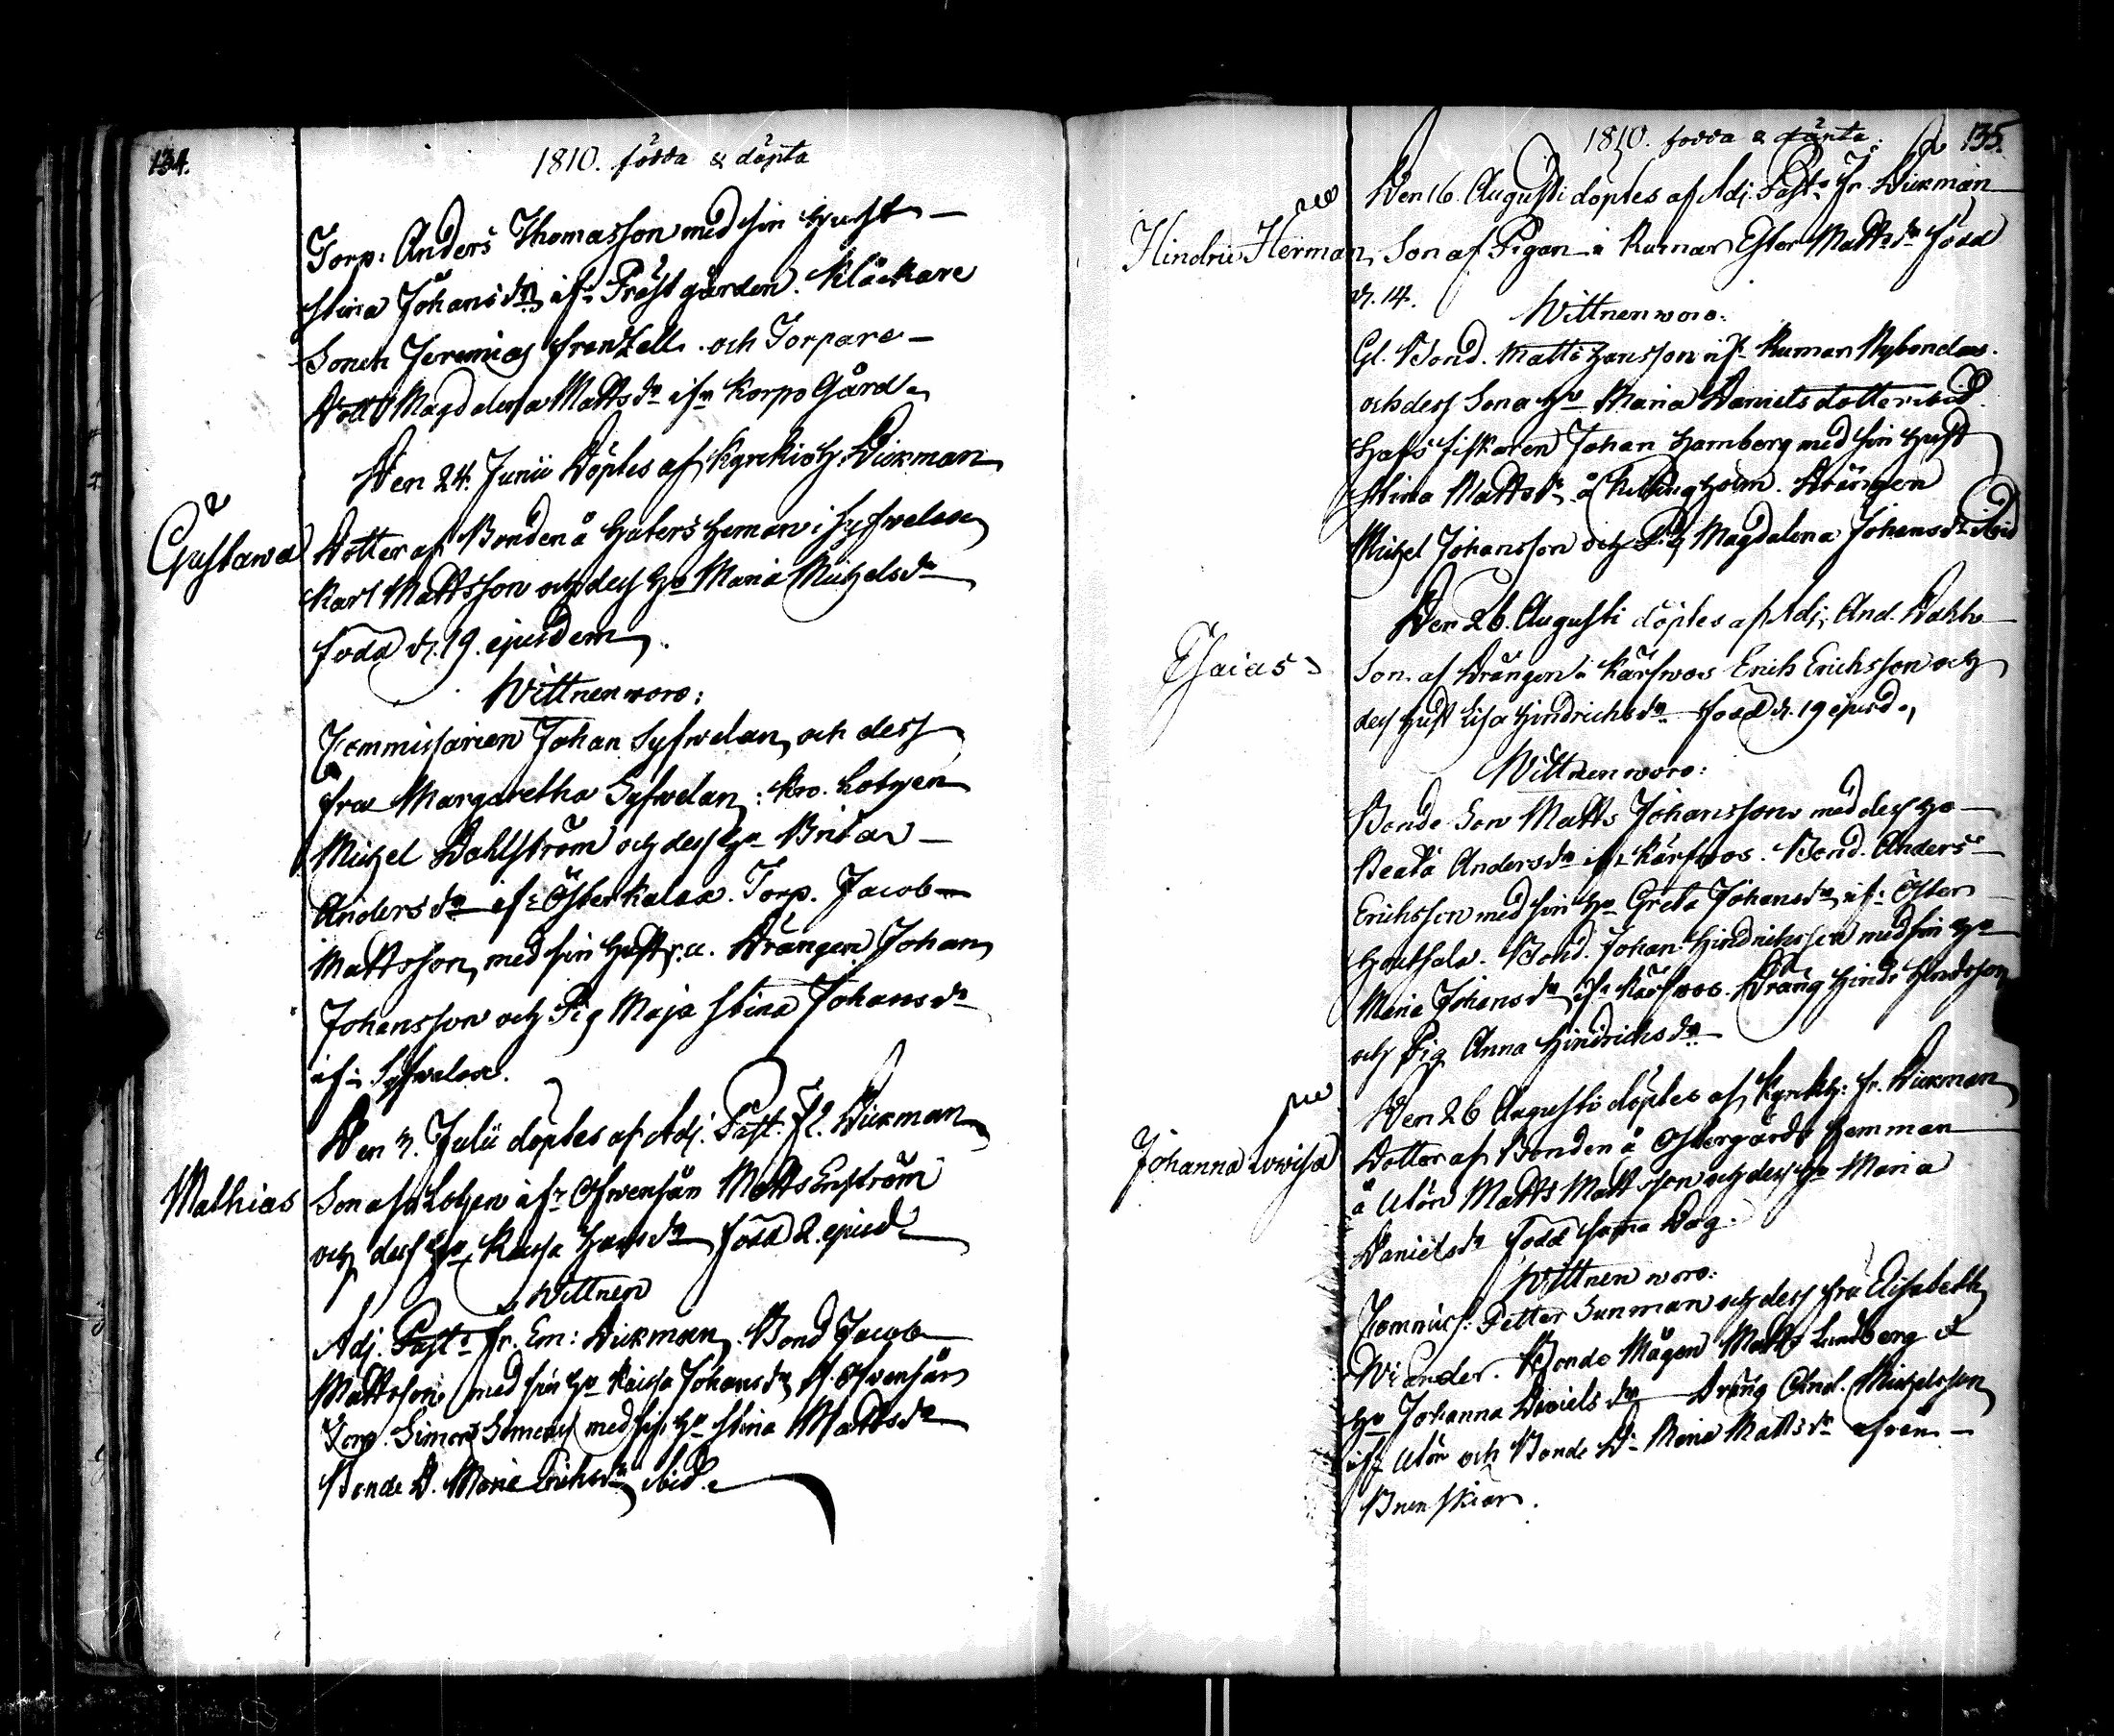 134.
1810. födda & döpta
Torp: Anders Thomasson med sin Hust
Stina Johansdr, ifr Prästgården. Klåckare
Sonen Jeremias Frentzell. och Torpare
Dott Magdalena Mattsdr ifrn Korpo Gård.
Den 24. Junii Döptes af Kyrkioh. Dickman
Gustawa Dotter af Bonden å Hemman i Syfwelax
Karl Mattsson och dess Ho Maria Michelsdr
född d. 19. ejusdem.
Wittnen woro:
Kommissarien Johan Syfwelan, och dess
fru Margaretha Syfwelan: Kro. Lotsen
Michel Dahlström och dess Ho Brita
Andersdr ifr Österkalax. Torp. Jacob
Mattsson, med sin Hustru. Drängen Johan
Johansson och Pig Maja Stina Johansdr
ifr Syfwelax.
Den 3. Julii döptes af Adj. Past. Fr. Dickman
Mathias Son af Lotsen ifr Ofwensån Matts Enström
och dess Ho Kaisa Hansdr född 2. ejusd.
Wittnen
Adj. Past. Fr. Em: Dickman. Bond Jacob
Mattsson med sin Ho Kaisa Johansdr Ofwensån
Torp. Simon med sin Ho Stina Mattsdr
Bonde D. Maria Erichsdr, ibid.
1810. födda & döpta. 135.
Den 16. Augusti döptes af Adj. Past. Fr. Dickman
Hindric Herman, Son af Pigan i Rumar Ester Mattsdr född
d. 14.
Wittnen woro:
Gl. Bond. Matts Hansson ifr Rumar Nybondas.
och dess Sona Ho Maria Danielsdotter ibid.
Hafsfiskaren Johan Hamberg med sin Hust
Stina Mattsdr å Drängen
Michel Johansson och Pig Magdalena Johansdr ibid
Den 26. Augusti döptes af Adj. And. Dahl
Esaias Son af Drängen i Kärfwos Erich Erichsson och
dess Hust Lisa Hindrichsdr född d. 19 ejusd.
Wittnen woro:
Bonde Son Matts Johansson med dess Ho
Beata Andersdr ifr Kärfwos. Bond. Anders
Erichsson med sin Ho Greta Johansdr ifr Öster
Houtsala. Bond. Johan Hindrichsson med sin Ho
Maria Johansdr ifr Kärfwos. Dräng Hindr Hindrsson
och Pig Anna Hindrichsdr
Den 26 Augusti döptes af Kyrkh: Fr. Dickman
Johanna Lovisa Dotter af Bonden å Östergårds Hemman
å Utön Matts Mattsson och dess Ho Maria
Danielsdr född sama Dag.
Wittnen woro:
Kommiss: Petter Sunman och dess fru Elisabeth
Wiander. Bonde Mågen Matts Lundberg &
Ho Johanna Danielsdr Dräng And. Michelsson
ifr Utön och Bonde Dr Maria Mattsdr
Brunskiär.